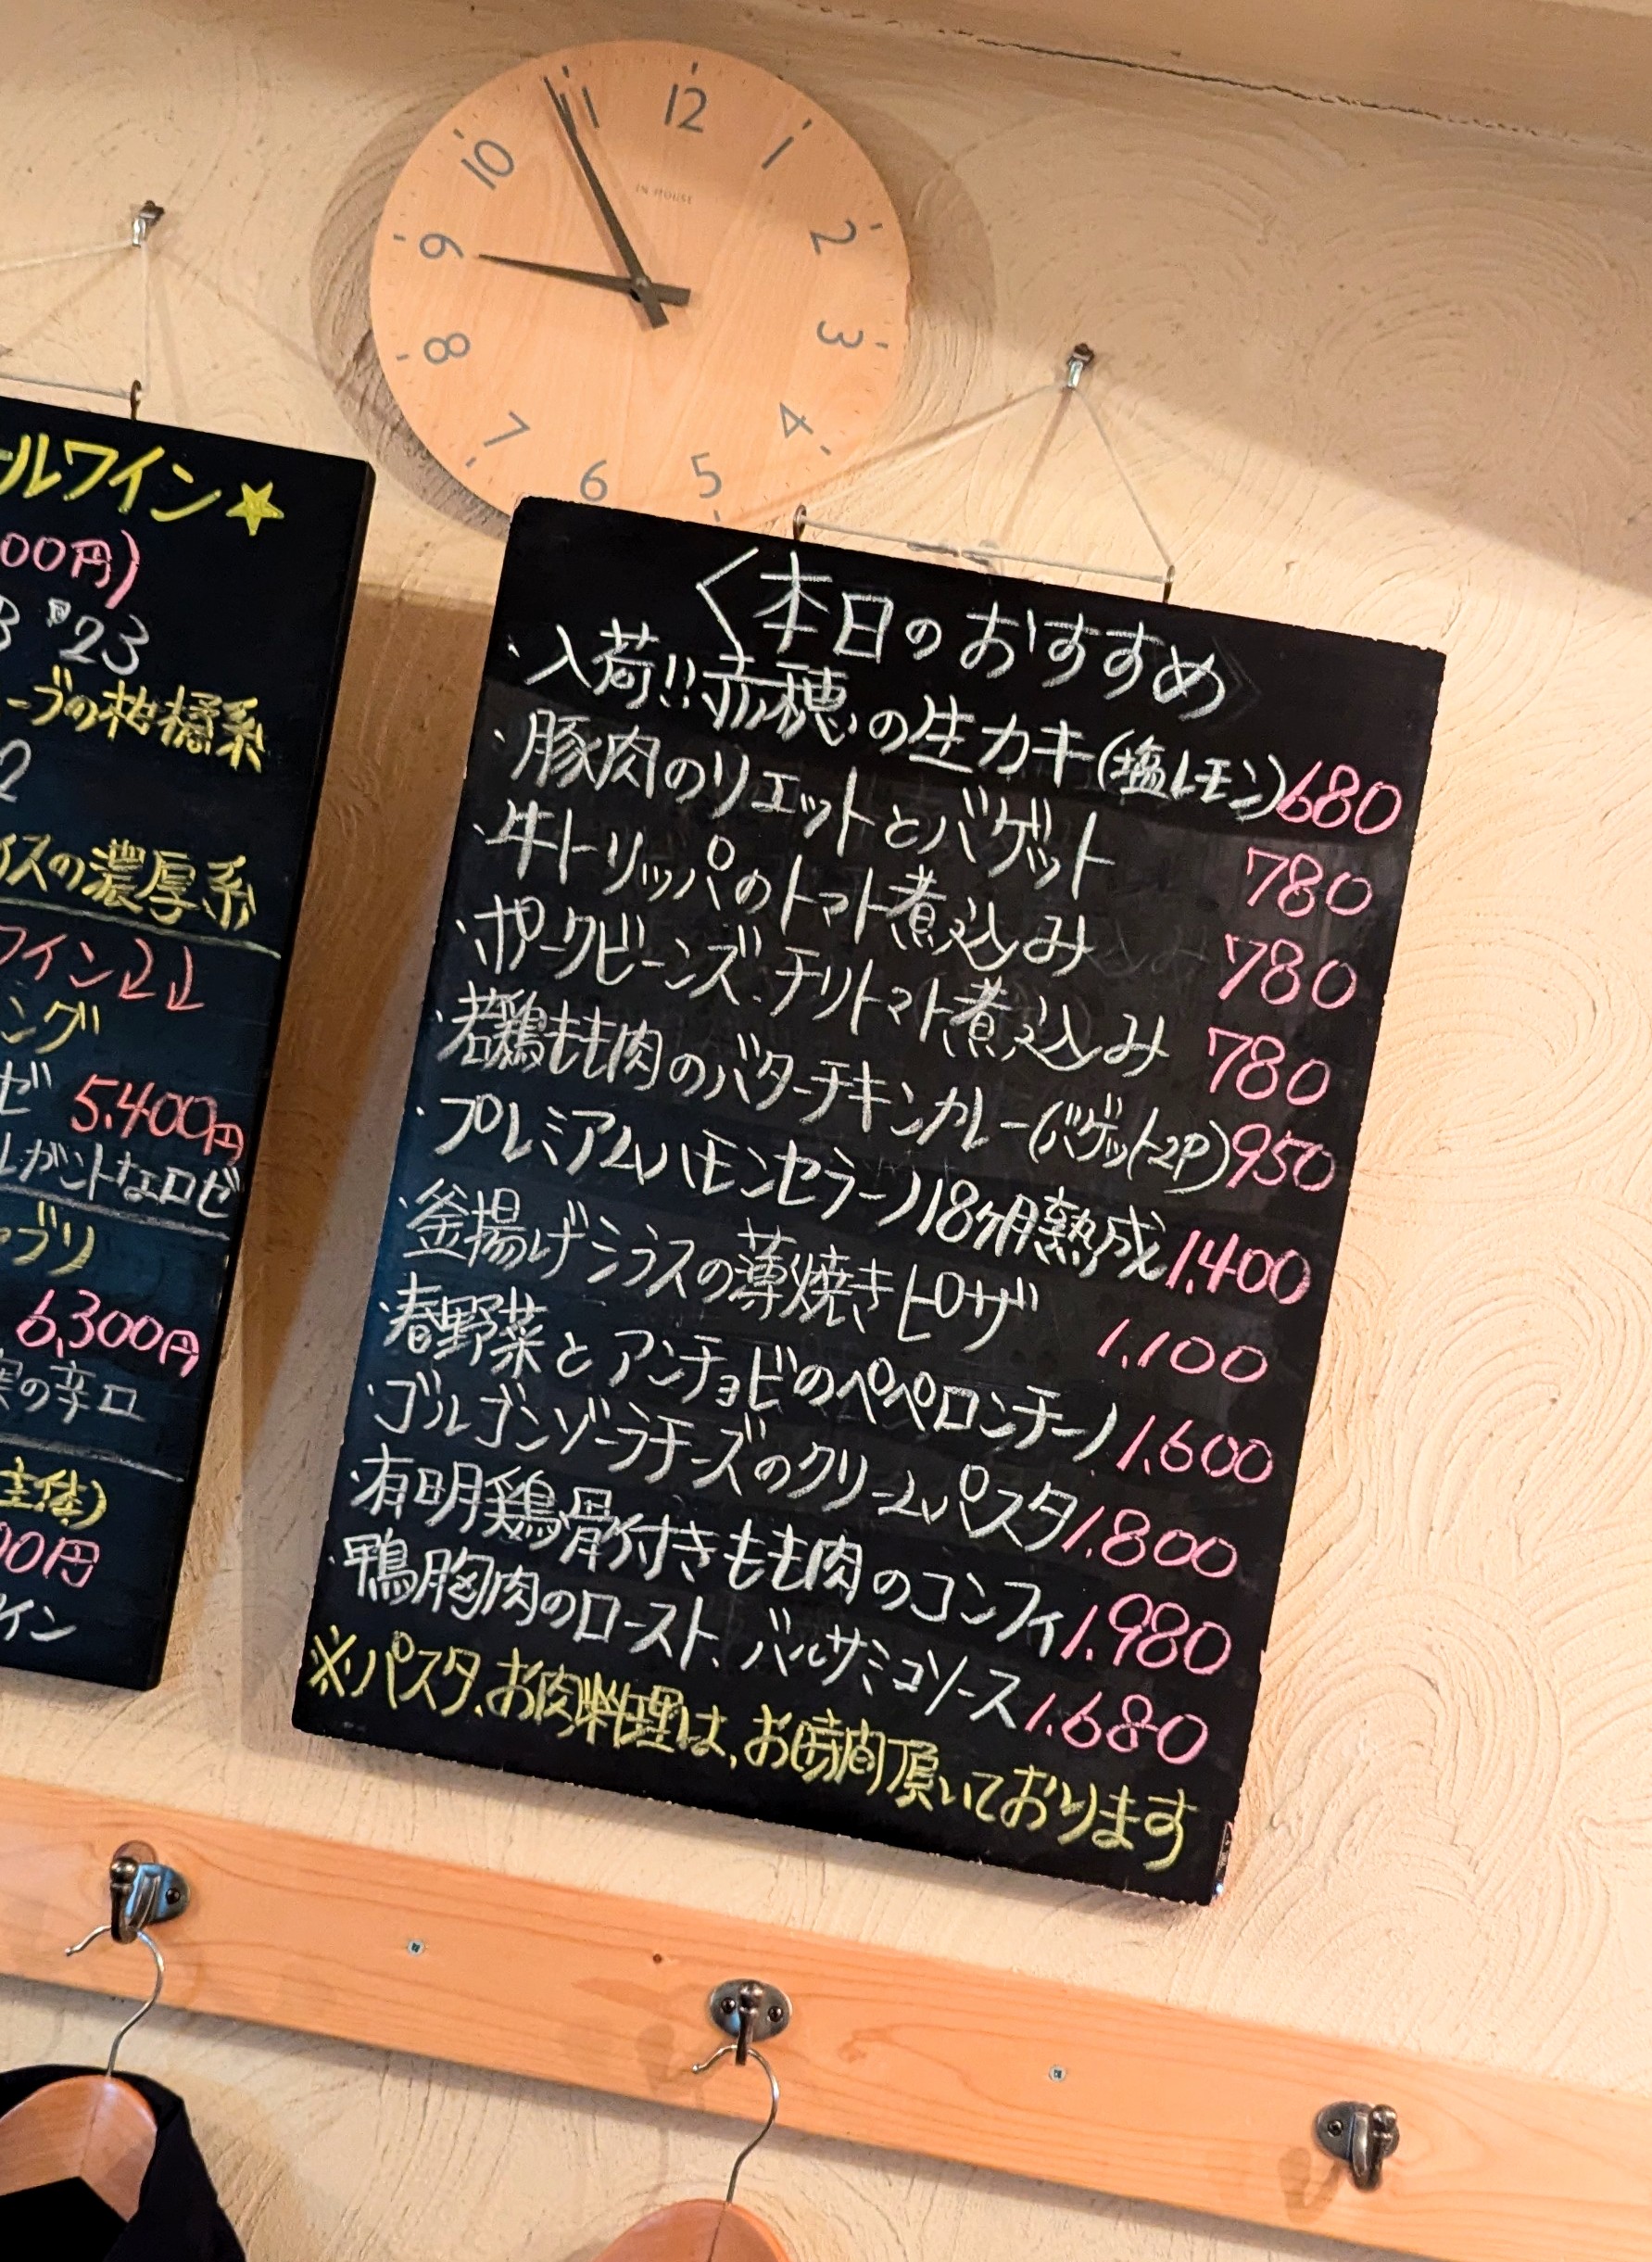 12
1
2
3
4
5
6
7
8
9
10
11
IN HOUSE
ールワイン★
00円)
3 '23
ーブの柑橘系
2
イスの濃厚系
ワイン↓↓
ング
ゼ 5.400円
レガントなロゼ
ブリ
6,300円
実の辛口
主体)
00円
イン
〈本日のおすすめ〉
・入荷!!赤穂の生カキ(塩レモン)680
・豚肉のリエットとバゲット 780
・牛トリッパのトマト煮込み 780
・ポークビーンズ、チリトマト煮込み 780
・若鶏もも肉のバターチキンカレー(バゲット2P)950
・プレミアムハモンセラーノ18ヶ月熟成1,400
・釜揚げシラスの薄焼きピザ 1.100
・春野菜とアンチョビのペペロンチーノ1.600
・ゴルゴンゾーラチーズのクリームパスタ1.800
・有明鶏骨付きもも肉のコンフィ1.980
・鴨胸肉のロースト、バルサミコソース1.680
※パスタ、お肉料理は、お時間頂いております